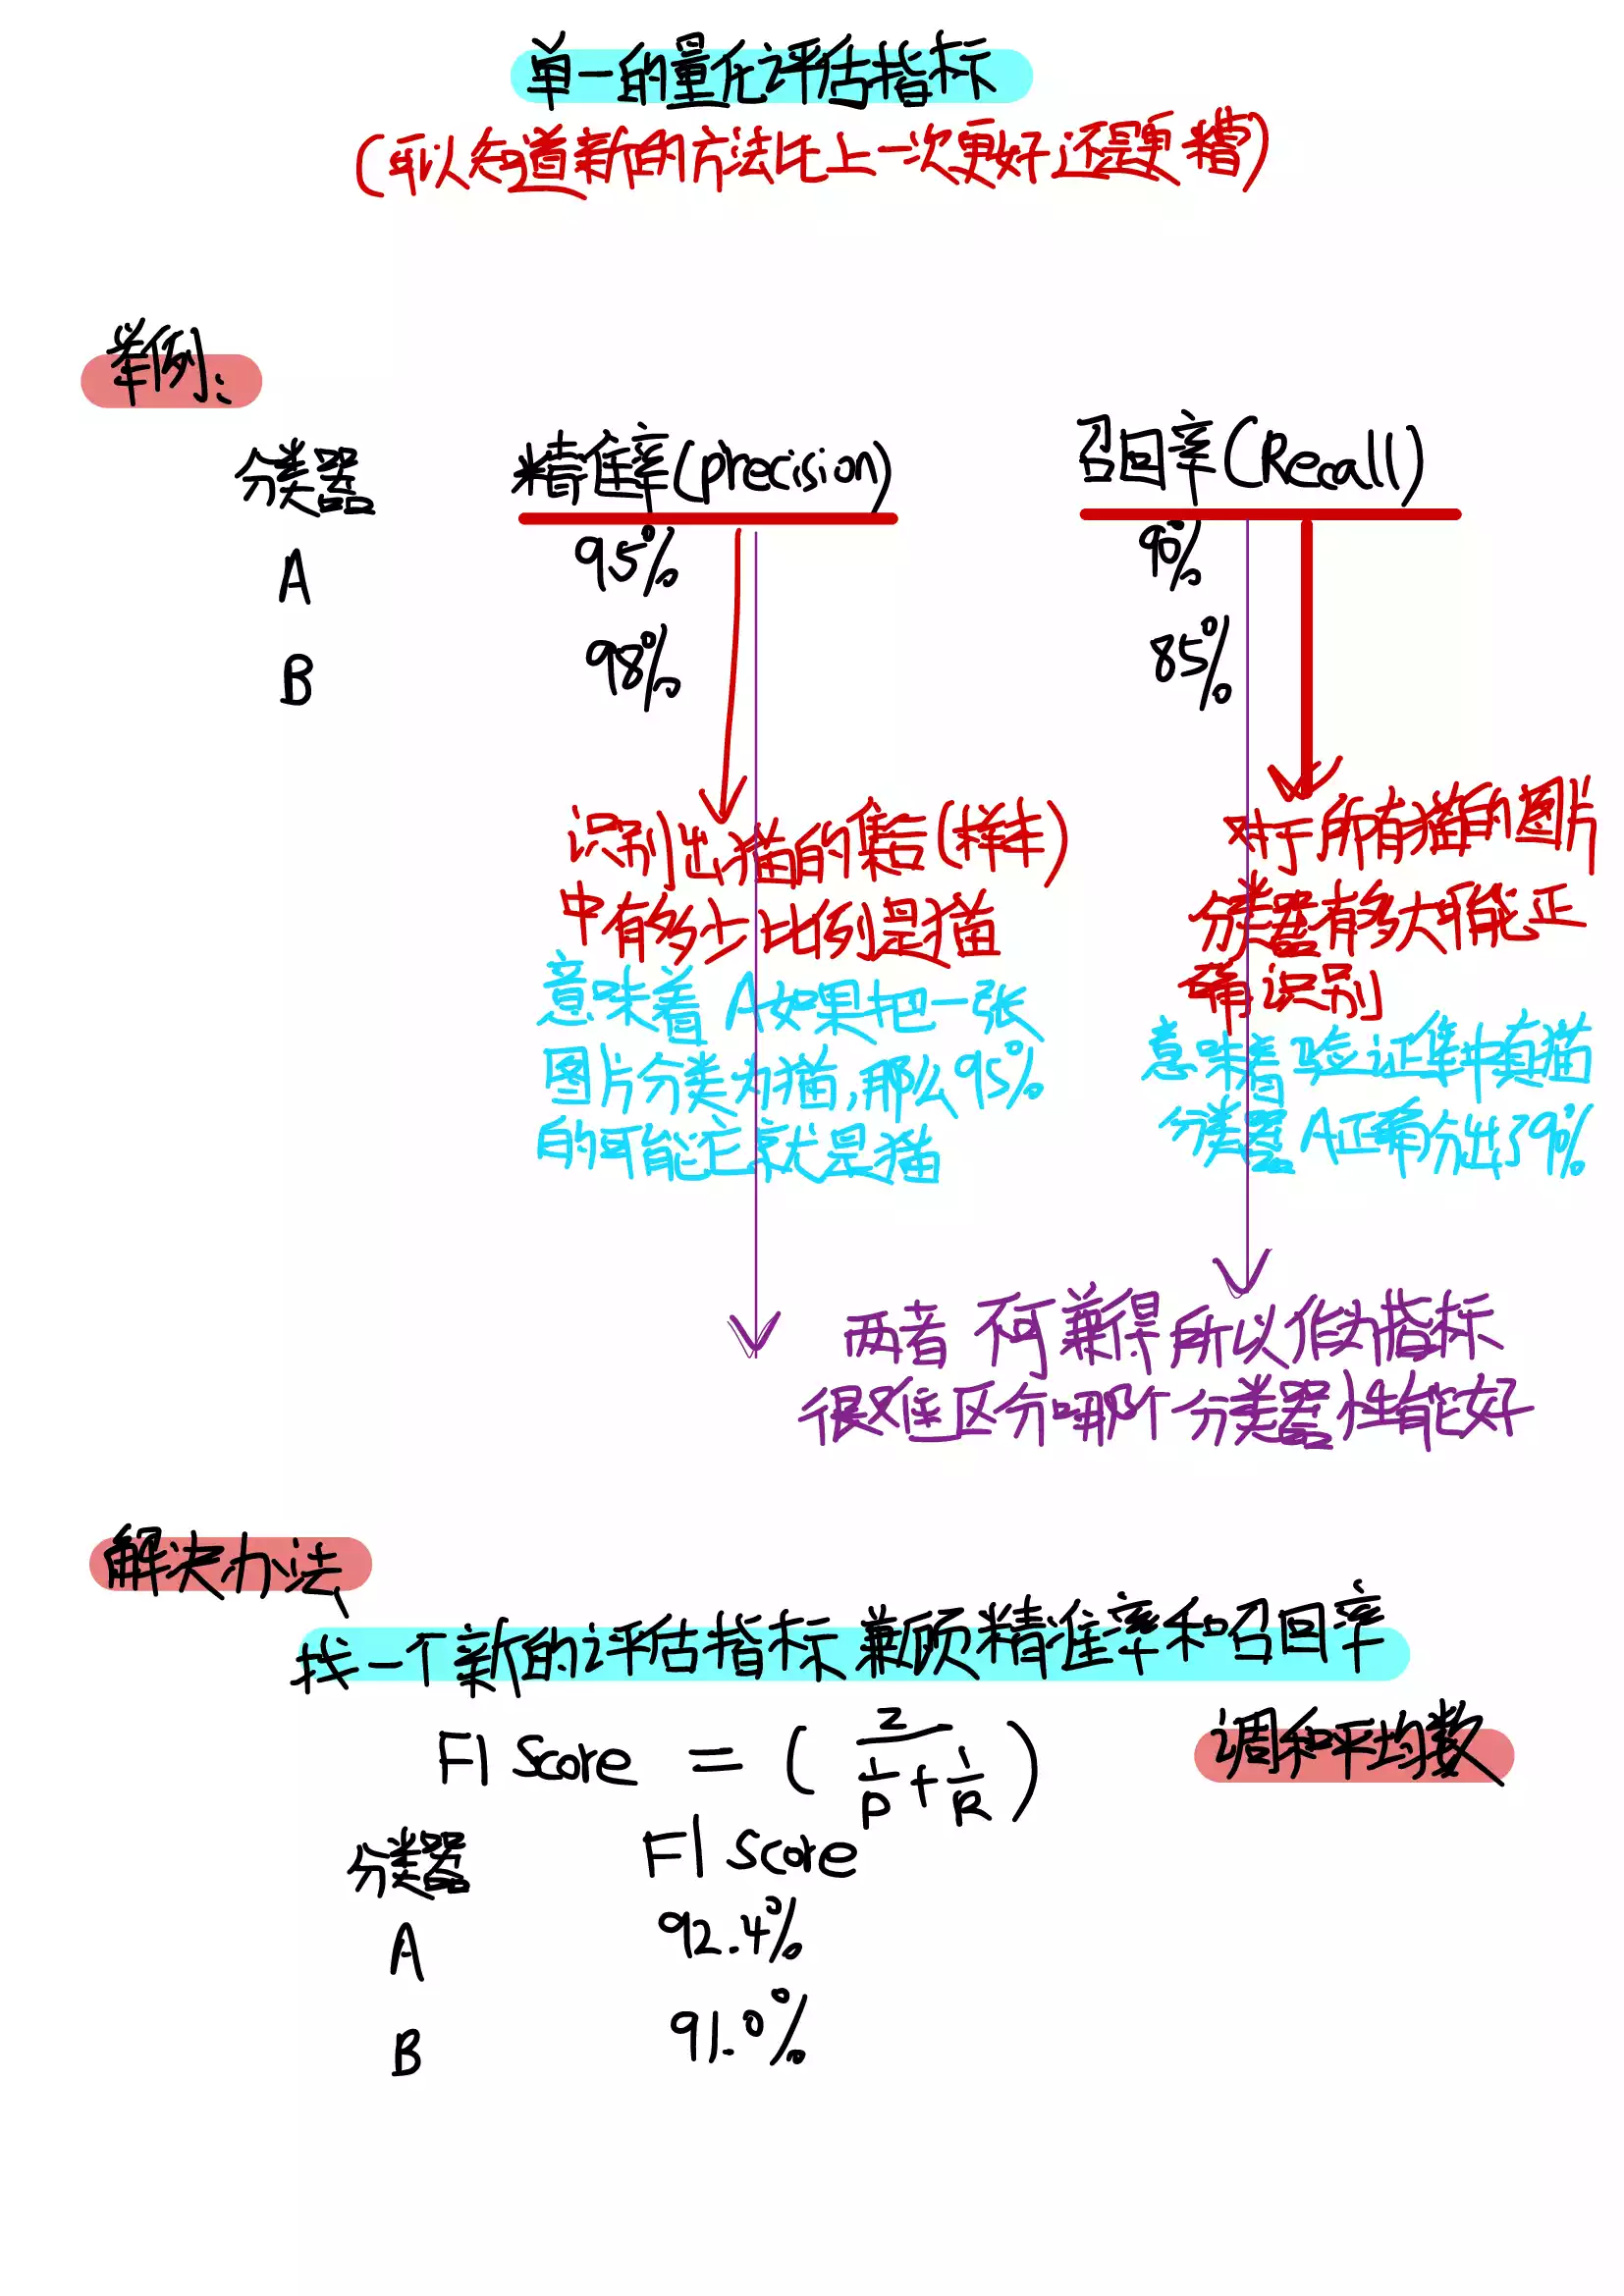 单一的量化评估指标
(可以知道新的方法比上一次更好还是更糟)
举例:
分类器 精准率(precision) 召回率(Recall)
A 95% 90%
B 98% 85%
识别出猫的集合(样本)
中有多少比例是猫
意味着 A如果把一张
图片分类为猫,那么95%
的可能它就是猫
对于所有猫的图片
分类器有多大可能正
确识别
意味着验证集中真猫
分类器A正确分出了90%
两者不可兼得所以作为指标
很难区分哪个分类器性能好
解决办法、
找一个新的评估指标兼顾精准率和召回率
F1 Score = ( 2 / (1/P + 1/R) ) 调和平均数
分类器 F1 Score
A 92.4%
B 91.0%